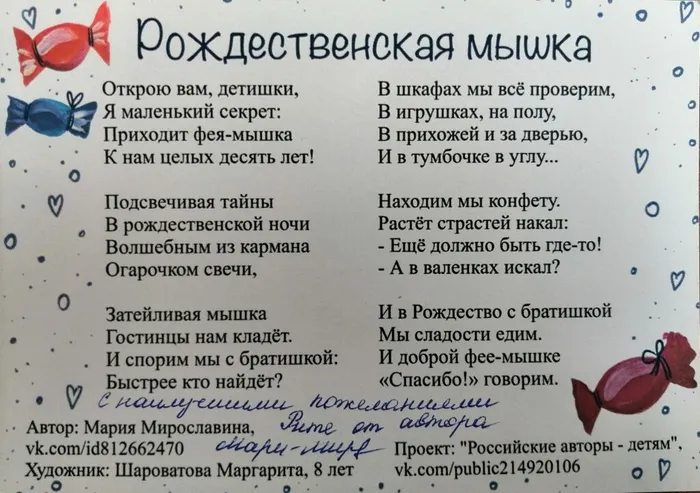 Рождественская мышка
Открою вам, детишки,
Я маленький секрет:
Приходит фея-мышка
К нам целых десять лет!
Подсвечивая тайны
В рождественской ночи
Волшебным из кармана
Огарочком свечи,
Затейливая мышка
Гостинцы нам кладёт.
И спорим мы с братишкой:
Быстрее кто найдёт?
В шкафах мы всё проверим,
В игрушках, на полу,
В прихожей и за дверью,
И в тумбочке в углу...
Находим мы конфету.
Растёт страстей накал:
- Ещё должно быть где-то!
- А в валенках искал?
И в Рождество с братишкой
Мы сладости едим.
И доброй фее-мышке
«Спасибо!» говорим.
С наилучшими пожеланиями
Рите от автора
Мари-Мира
Автор: Мария Мирославина,
vk.com/id812662470
Художник: Шароватова Маргарита, 8 лет
Проект: "Российские авторы - детям",
vk.com/public214920106